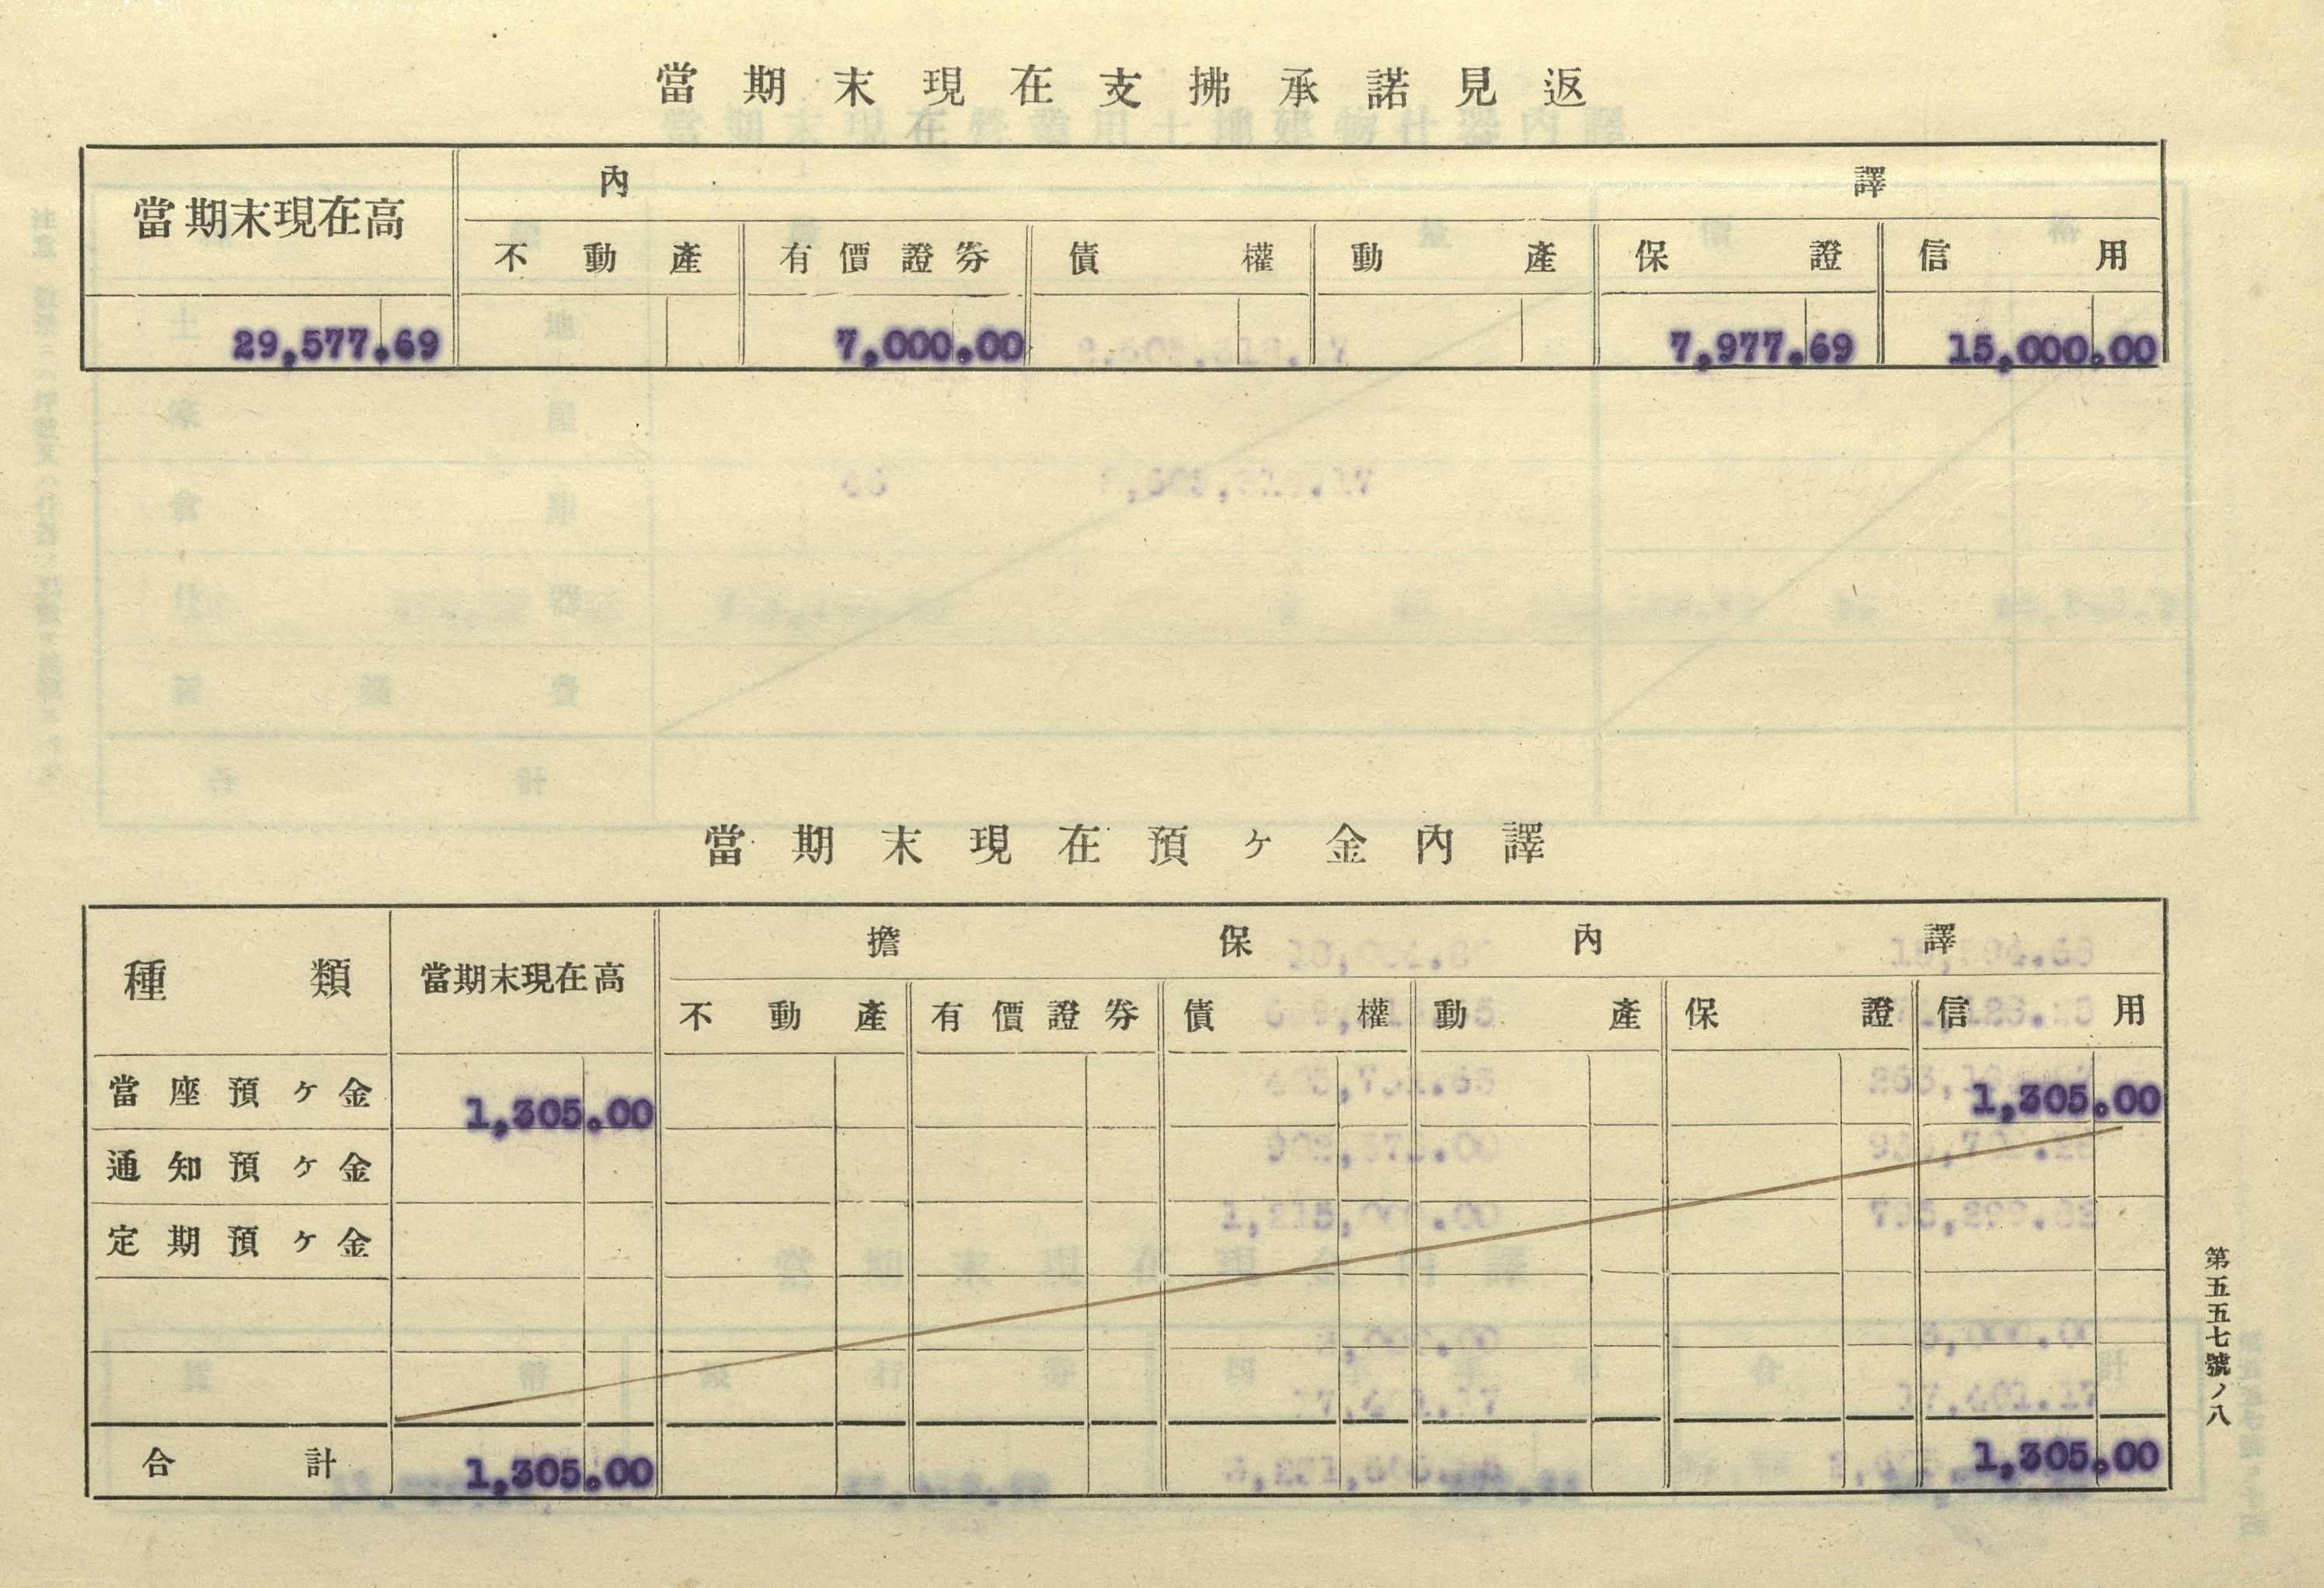 當期末現在支拂承諾見返
當期末現在高 內譯
不動產 有價證券 債權 動產 保證 信用
29,577.69 7,000.00 7,977.69 15,000.00
當期末現在預ヶ金內譯
種類 當期末現在高 擔保內譯
不動產 有價證券 債權 動產 保證 信用
當座預ヶ金 1,305.00 1,305.00
通知預ヶ金
定期預ヶ金
合計 1,305.00 1,305.00
第五五七號ノ八